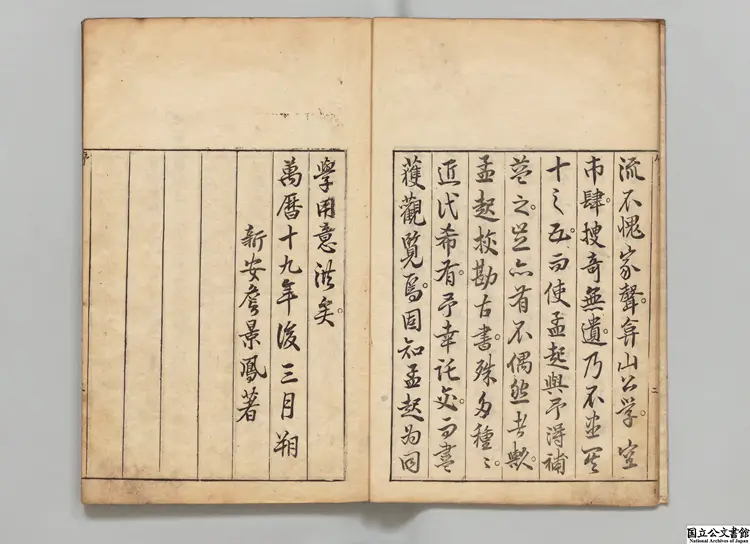 流不愧家聲。弇山公學。空
市肆。搜奇無遺。乃不
十之五。而使孟起與予得補
之。豈亦有不偶然者歟。
孟起挍勘古書。殊多種〻
近代希有。予幸託交。而盡
獲觀覽焉。固知孟起為同
學用意洪矣。
萬暦十九年後三月朔
新安詹景鳳著
国立公文書館
National Archives of Japan